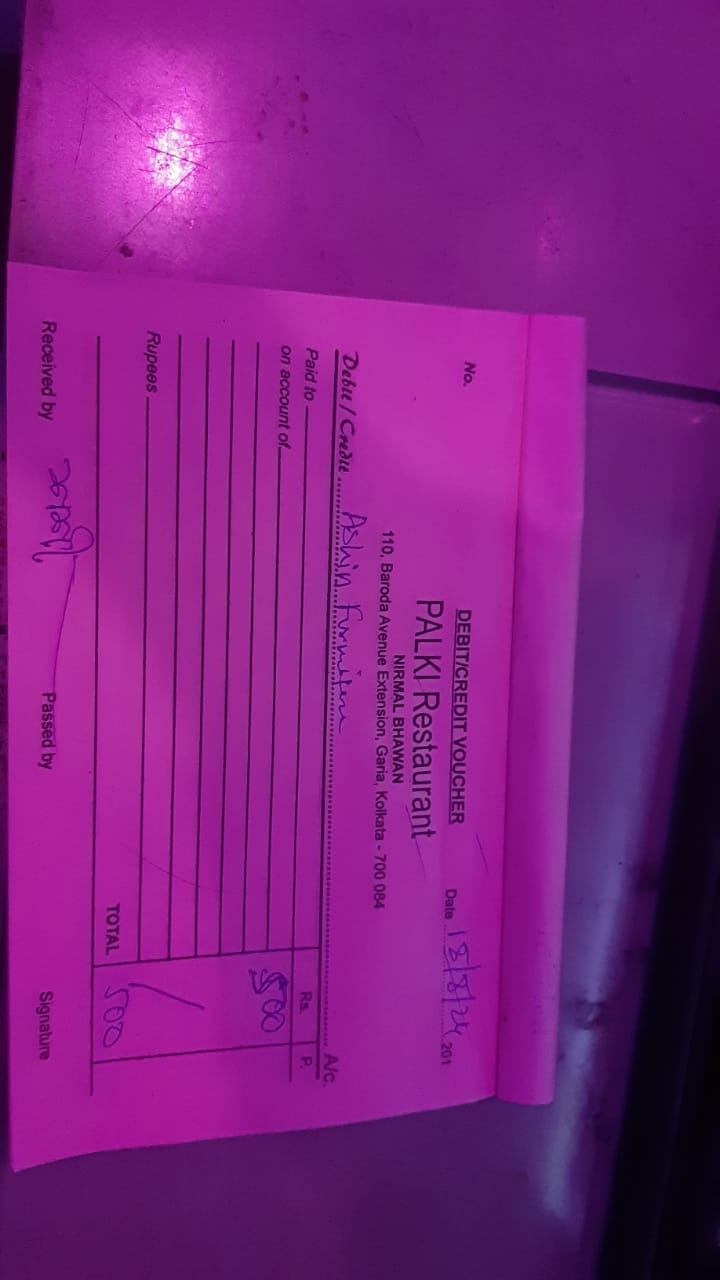 DEBIT/CREDIT VOUCHER
No.
Date 18/8/24 201
PALKI Restaurant
NIRMAL BHAWAN
110, Baroda Avenue Extension, Garia, Kolkata - 700 084
Debit / Credit Ashin Furniture A/c.
Paid to Rs. P.
on account of 500
Rupees
TOTAL 500
Received by Passed by Signature